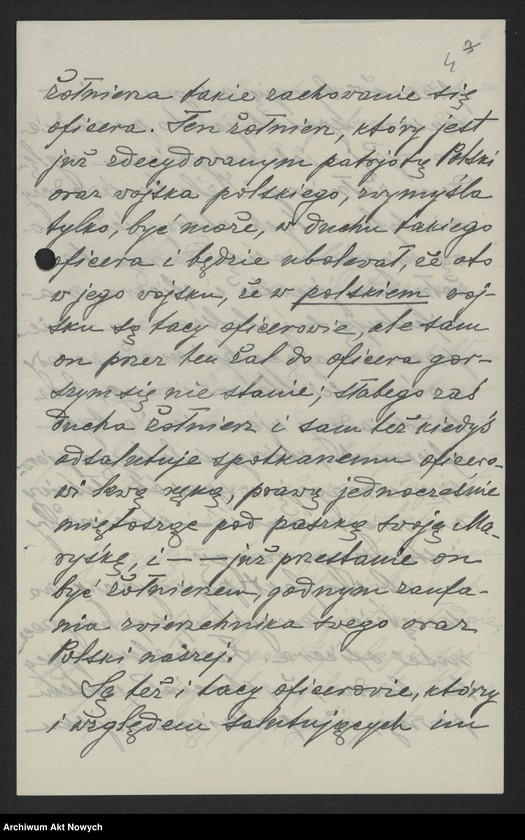 4
żołnierza takie zachowanie się
oficera. Ten żołnierz, który jest
już zdecydowanym patrjotą Polski
oraz wojska polskiego, zwymyśla
tylko, być może, w duchu takiego
oficera i będzie ubolewał, że oto
w jego wojsku, że w polskiem woj-
sku są tacy oficerowie, ale sam
on przez ten żal do oficera gor-
szym się nie stanie; słabego zaś
ducha żołnierz i sam też kiedyś
odsalutuje spotkanemu oficero-
wi lewą ręką, prawą jednocześnie
międosząc pod paszką swoją Ma-
ryśkę, i — — już przestanie on
być żołnierzem, godnym zaufa-
nia zwierzchnika swego oraz
Polski naszej.
Są też i tacy oficerowie, którzy
i względem salutujących im
Archiwum Akt Nowych